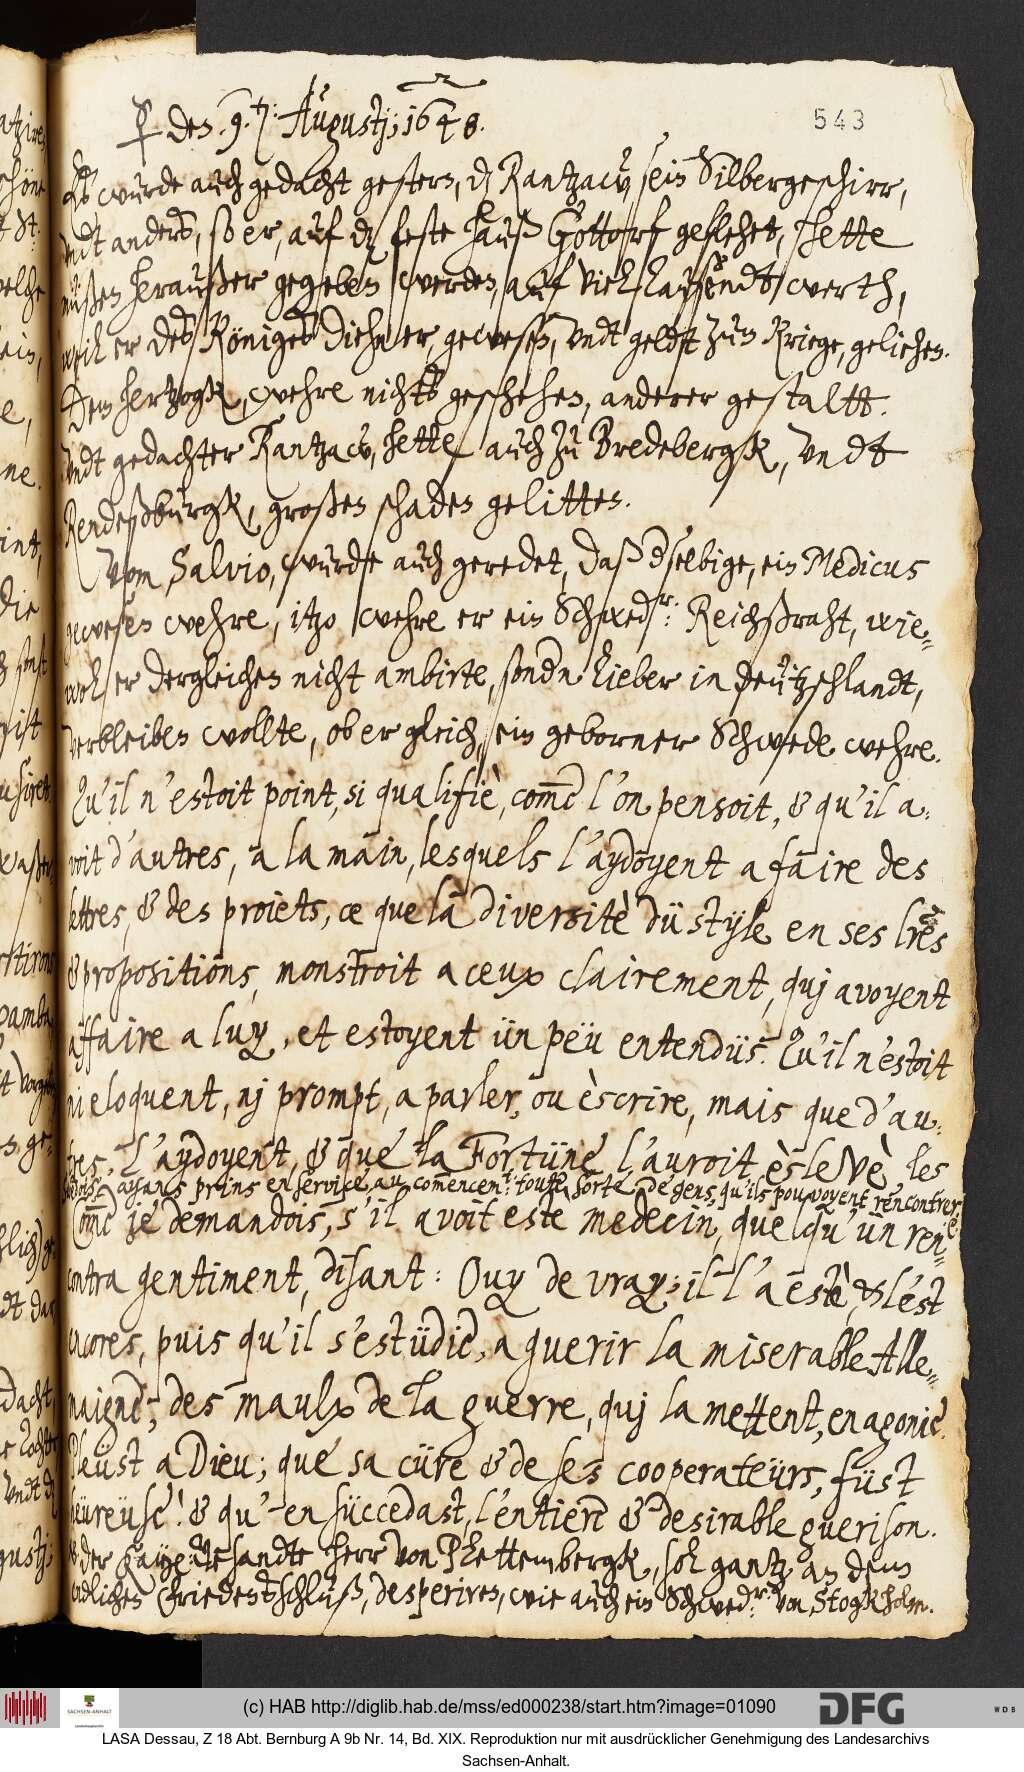 ☿ den 9.ten: Augustj; 1648.
543
Es wurde auch gedacht gestern, daß Rantzaw sein Silbergeschirr,
undt anders, so er, auf daß feste Hauß Gottorf geflehet, hette
müßen heraußer gegeben werden, auf viel tausendt werth,
weil er des Königes diehner, gewesen, undt geldt zum Kriege, geliehen.
Dem hertzogk, wehre nichts geschehen, anderer gestaltt.
Undt gedachter Rantzaw, hette auch zu Bredebergk, undt
Rendeßburgk, großen schaden gelitten.
Vom Salvio, wurde auch geredet, daß dselbige, ein Medicus
gewesen wehre, itzo wehre er ein Schwedr: Reichßraht, wie„
wol er dergleichen nicht ambirte, sondn lieber in Deützschlandt,
verbleiben wollte, ob er gleich, ein geborner Schwede wehre.
Qu'il n'estoit point, si qualifiè, com̃e l'on pensoit, & qu'il a„
voit d'autres, a la main, lesquels l'aydoyent a faire des
lettres, & des proiets, ce que la diversitè dü style en ses lr̃es
& propositions, monstroit a ceux clairement, quj avoyent
affaire a luy, et estoyent ün peü entendüs. Qu'il n'estoit
ni eloquent, nj prompt, a parler, ou èscrire, mais que d'au„
tres l'aydoyent, & que la Fortüne l'auroit èslevè, les
Suedois, ayans prins en service, au com̃encent: toute sorte de gens, qu'ils pouvoyent rencontrer.
Com̃e je demandois, s'il avoit este medecin, quelqu'ün ren„
contra gentiment, disant: Ouy de vray; il l'a estè, & l'est
encores, puis qu'il s'estüdie, a guerir la miserable Alle„
maigne, des maulx de la guerre, quj la mettent, en agonie.
Pleüst a Dieu; que sa cüre & de ses cooperateürs, füst
heüreüse! & qu'-en süccedast, l'entiere & desirable guerison.
& der Kayße: Gesandte Herr von Plettembergk, sol gantz an dem
endlichen Friedenßschluß, desperiren, wie auch ein Schwedr: von Stogkholm.
(c) HAB http://diglib.hab.de/mss/ed000238/start.htm?image=01090
SACHSEN-ANHALT
DFG
WDB
LASA Dessau, Z 18 Abt. Bernburg A 9b Nr. 14, Bd. XIX. Reproduktion nur mit ausdrücklicher Genehmigung des Landesarchivs
Sachsen-Anhalt.